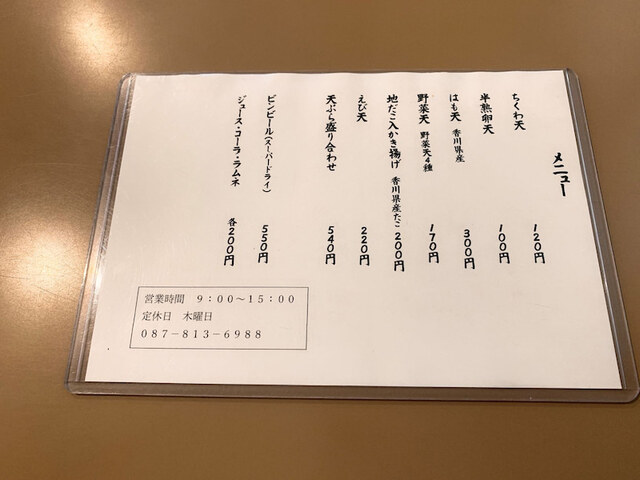 メニュー
ちくわ天 120円
半熟卵天 100円
はも天 香川県産 300円
野菜天 野菜天4種 170円
地だこ入かき揚げ 香川県産たこ 200円
えび天 220円
天ぷら盛り合わせ 540円
ビンビール(スーパードライ) 550円
ジュース・コーラ・ラムネ 各200円
営業時間 9:00～15:00
定休日 木曜日
087-813-6988